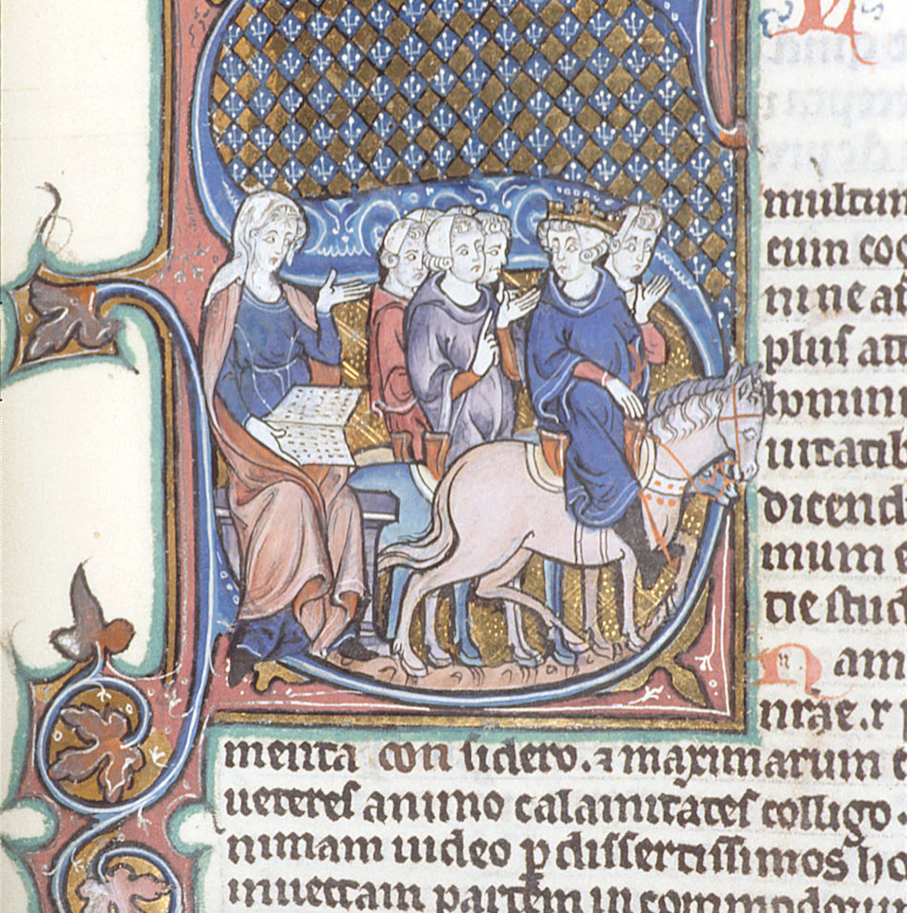 multum
cum cog
ni ne at
plus att
homini
uitatib
dicend
mum e
tie stud
Nam
nrae. r p
menta considero. ⁊ maximarum c
ueteres animo calamitates colligo.
nimam uideo ꝑ dissertissimos ho
inuectam partem incommodoru